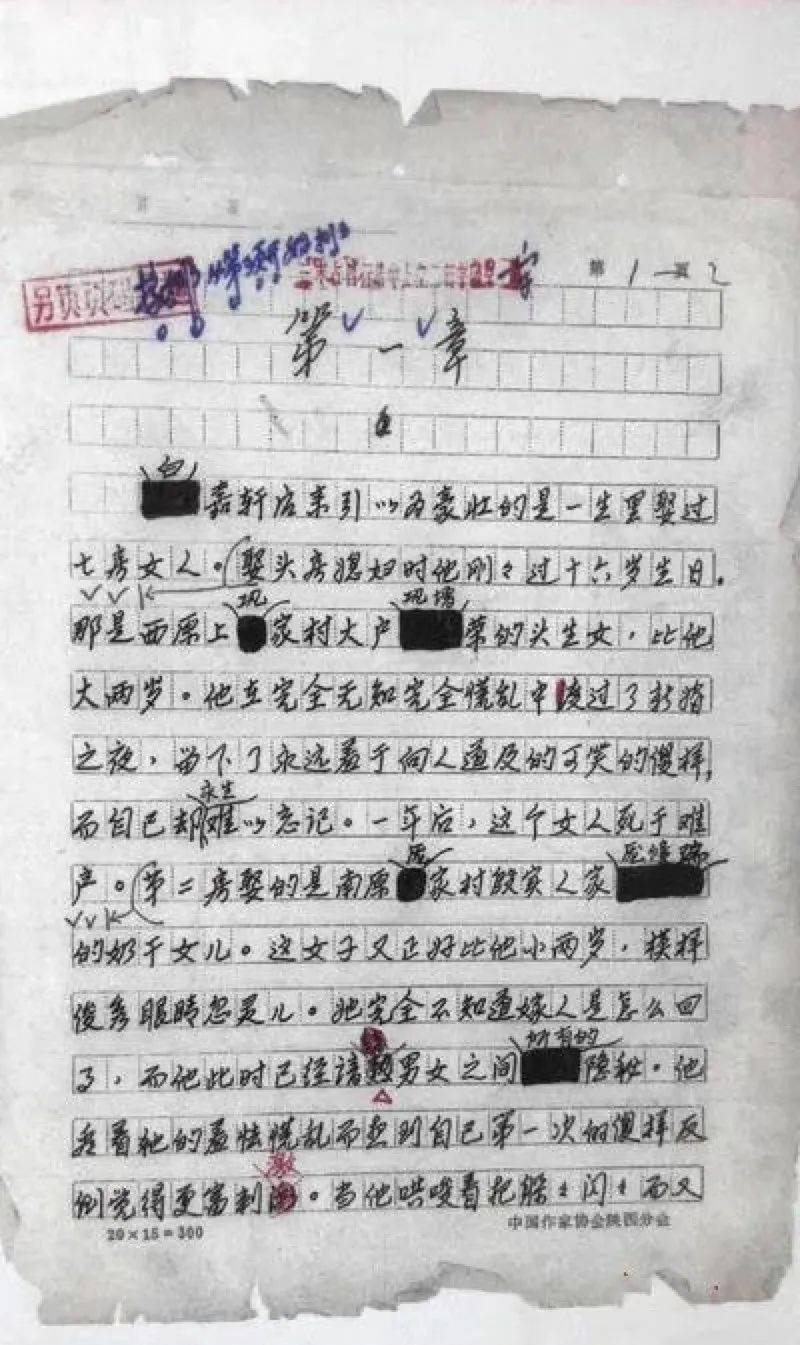 另页
第1页 2
第一章
白
嘉轩后来引以为豪壮的是一生里娶过
七房女人。娶头房媳妇时他刚刚过十六岁生日。
巩 巩增
那是西原上 家村大户 荣的头生女,比他
大两岁。他在完全无知完全慌乱中度过了新婚
之夜,留下了永远羞于向人道及的可笑的傻样,
永生
而自己却难以忘记。一年后,这个女人死于难
庞 庞修瑞
产。第二房娶的是南原 家村殷实人家
的奶干女儿。这女子又正好比他小两岁,模样
俊秀眼睛忽灵儿。她完全不知道嫁人是怎么回
所有的
了,而他此时已经谙 男女之间 隐秘。他
看着她的羞怯慌乱而想到自己第一次的傻样反
激
倒觉得更富刺 。当他哄唆着把躲躲闪闪而又
20×15=300
中国作家协会陕西分会